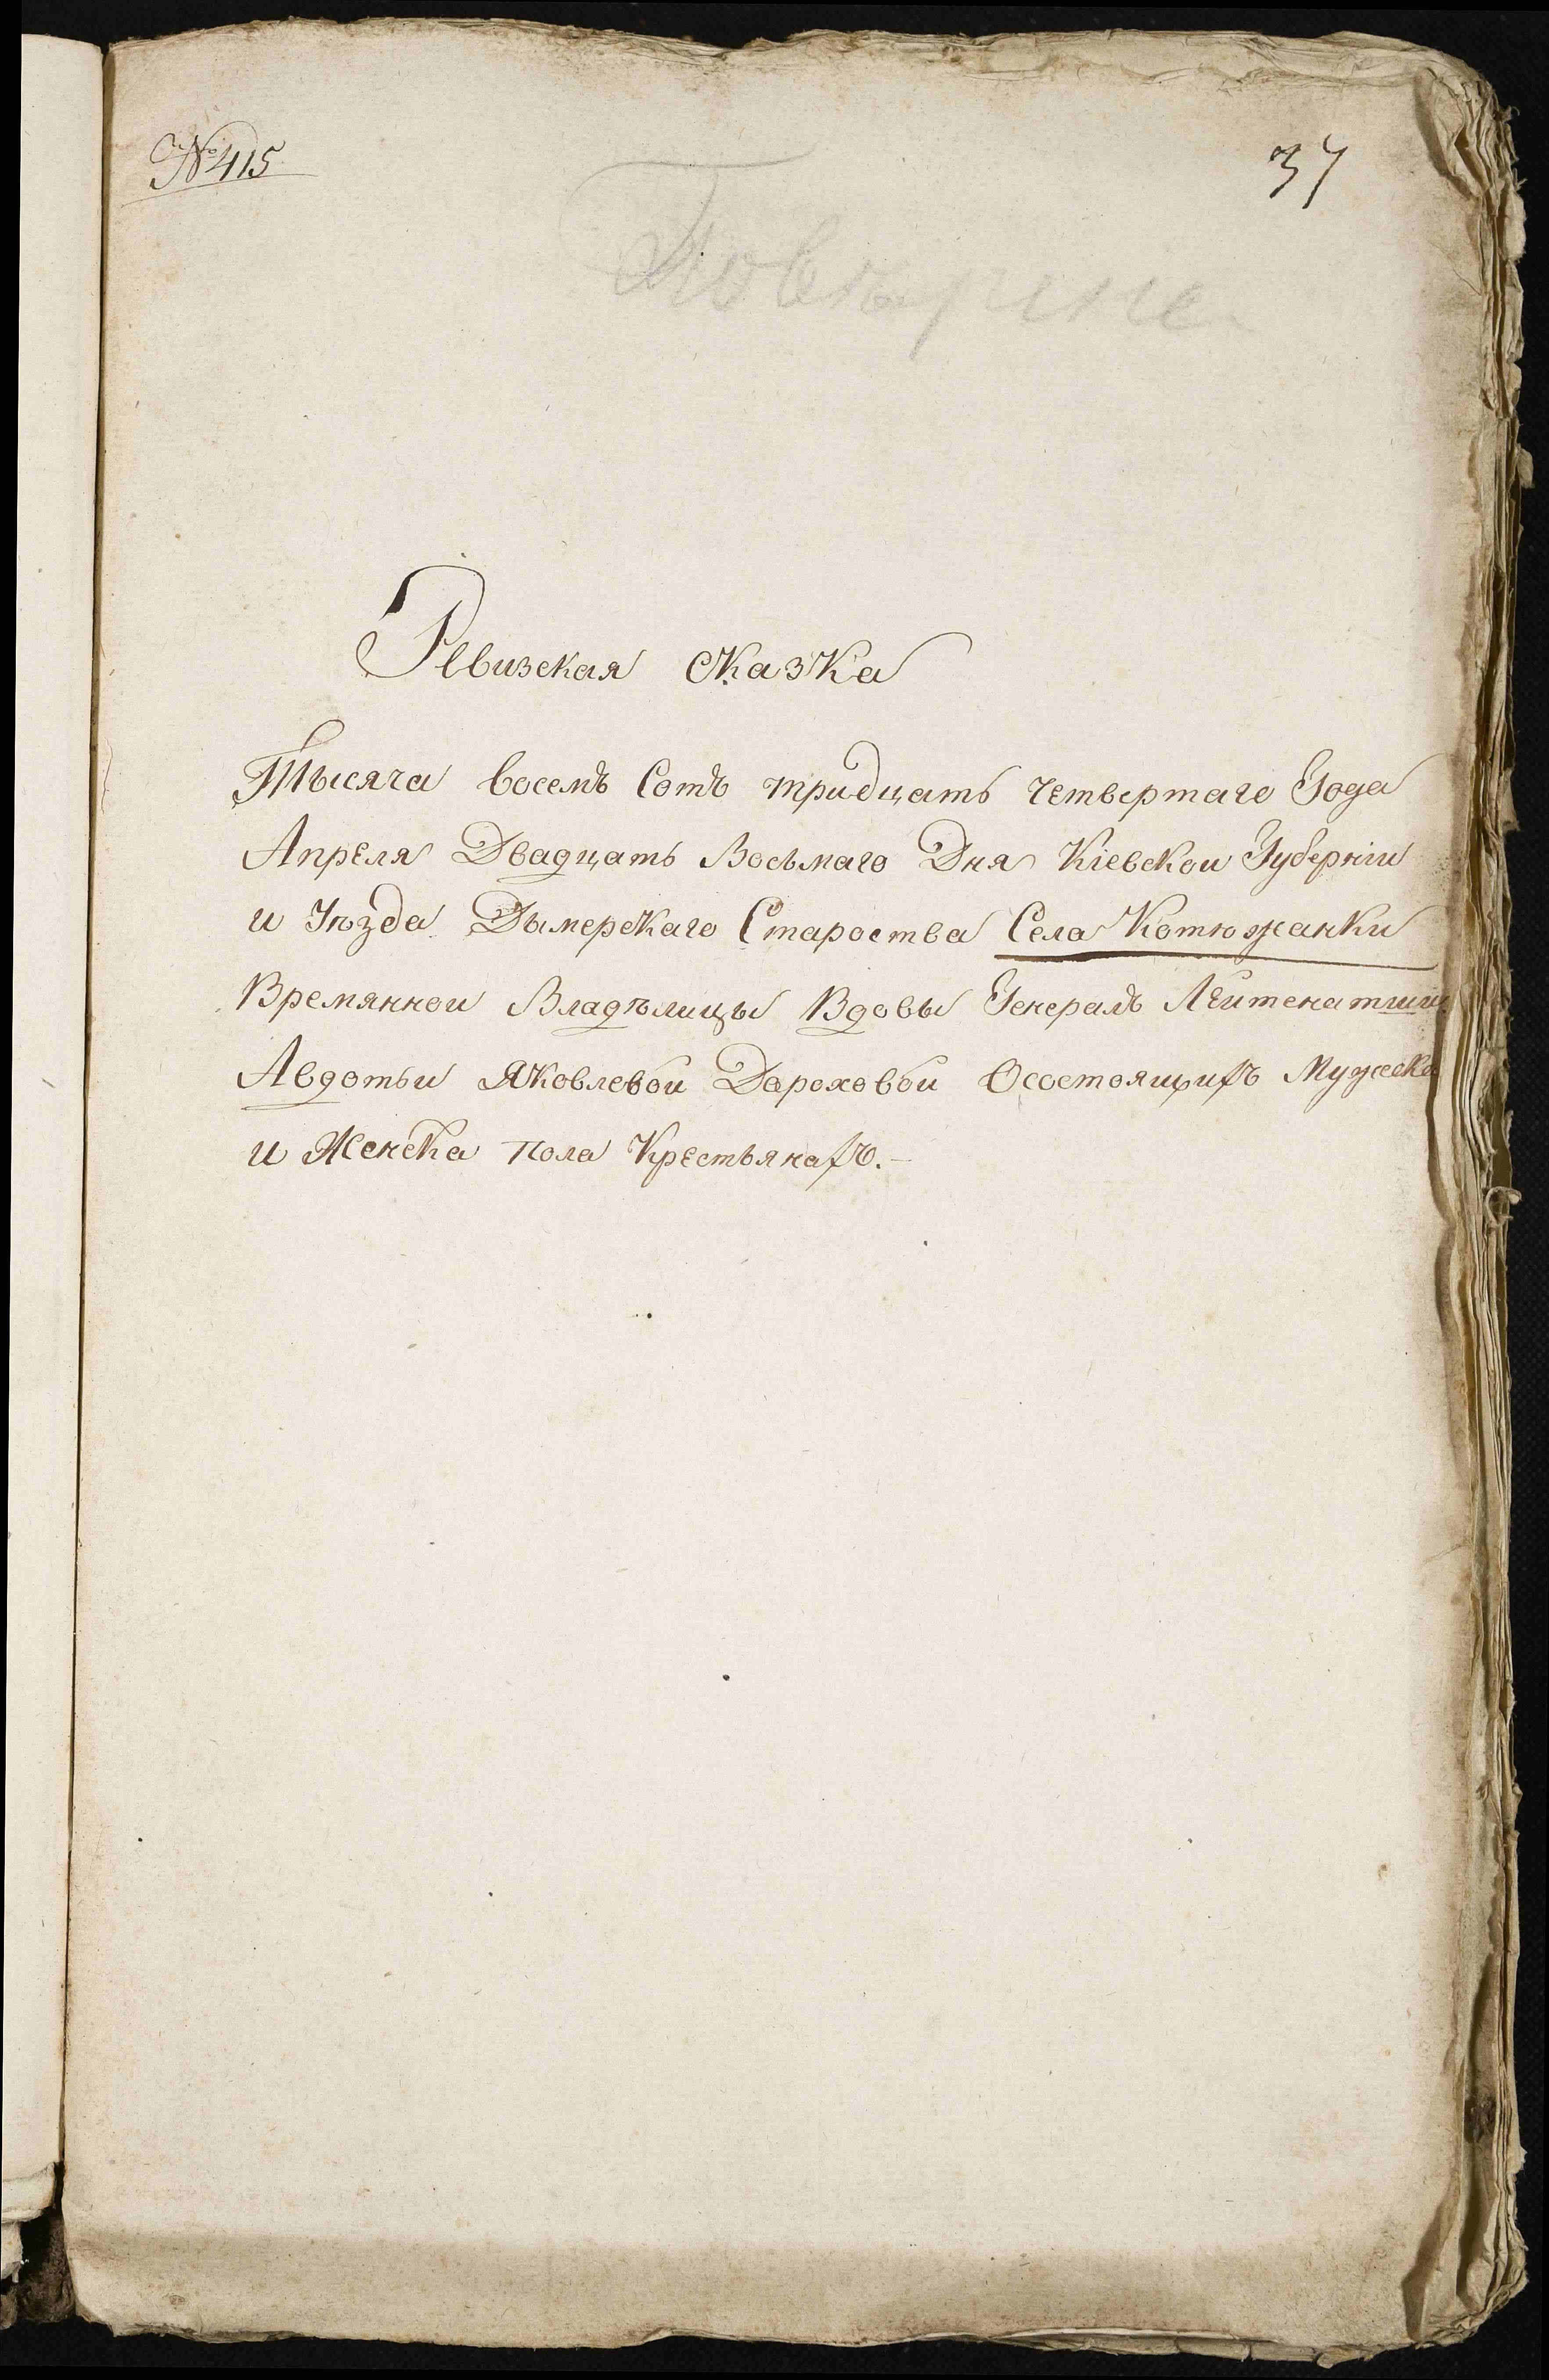 № 415
37
Повѣрине
Ревизская сказка
Тысяча восемъ Сотъ тридцать четвертаго Года
Апреля Двадцать Восьмаго Дня Кіевскои Губерніи
и Уѣзда Дымерскаго Староства Села Котюжанки
Времяннои Владѣлицы Вдовы Генералъ Леитенатши
Авдотьи Яковлевои Дороховои Осостоящихъ Мужеска
и Женска пола Крестьянахъ.-